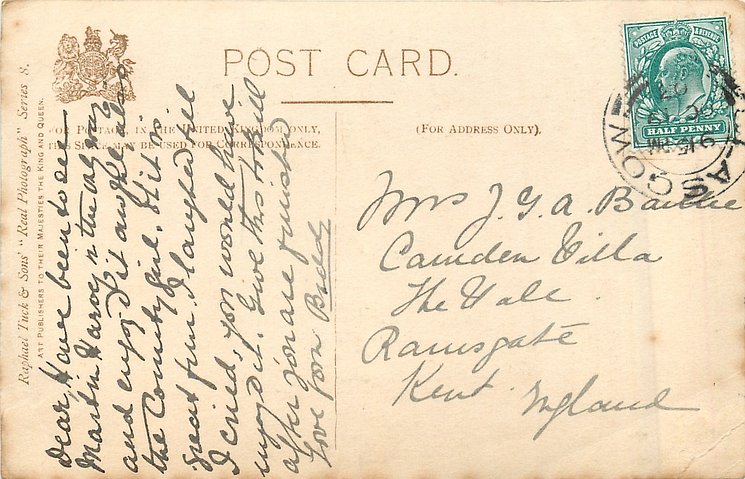 POST CARD.
FOR POSTAGE IN THE UNITED KINGDOM ONLY,
THIS SPACE MAY BE USED FOR CORRESPONDENCE.
(FOR ADDRESS ONLY).
Raphael Tuck & Sons' "Real Photograph" Series 8.
ART PUBLISHERS TO THEIR MAJESTIES THE KING AND QUEEN.
POSTAGE REVENUE
HALF PENNY
GLASGOW
9.15 PM
Dear, Have been to see
Martin Harvey in the
and enjoyed it awfully, also
the Country Girl.
great fun. I laughed till
I cried, you would have
enjoyed it. Give this to
after you are finished
love from
Mrs J. G. A. Baillie
Camden Villa
The Vale
Ramsgate
Kent. England